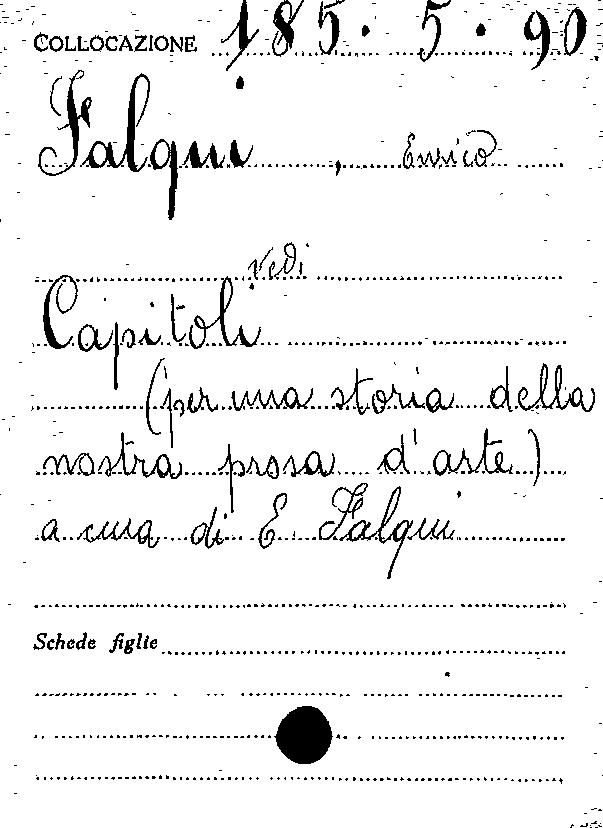 COLLOCAZIONE 185. 5. 90
Falqui, Enrico
vedi
Capitoli
(per una storia della
nostra prosa d'arte)
a cura di E. Falqui
Schede figlie